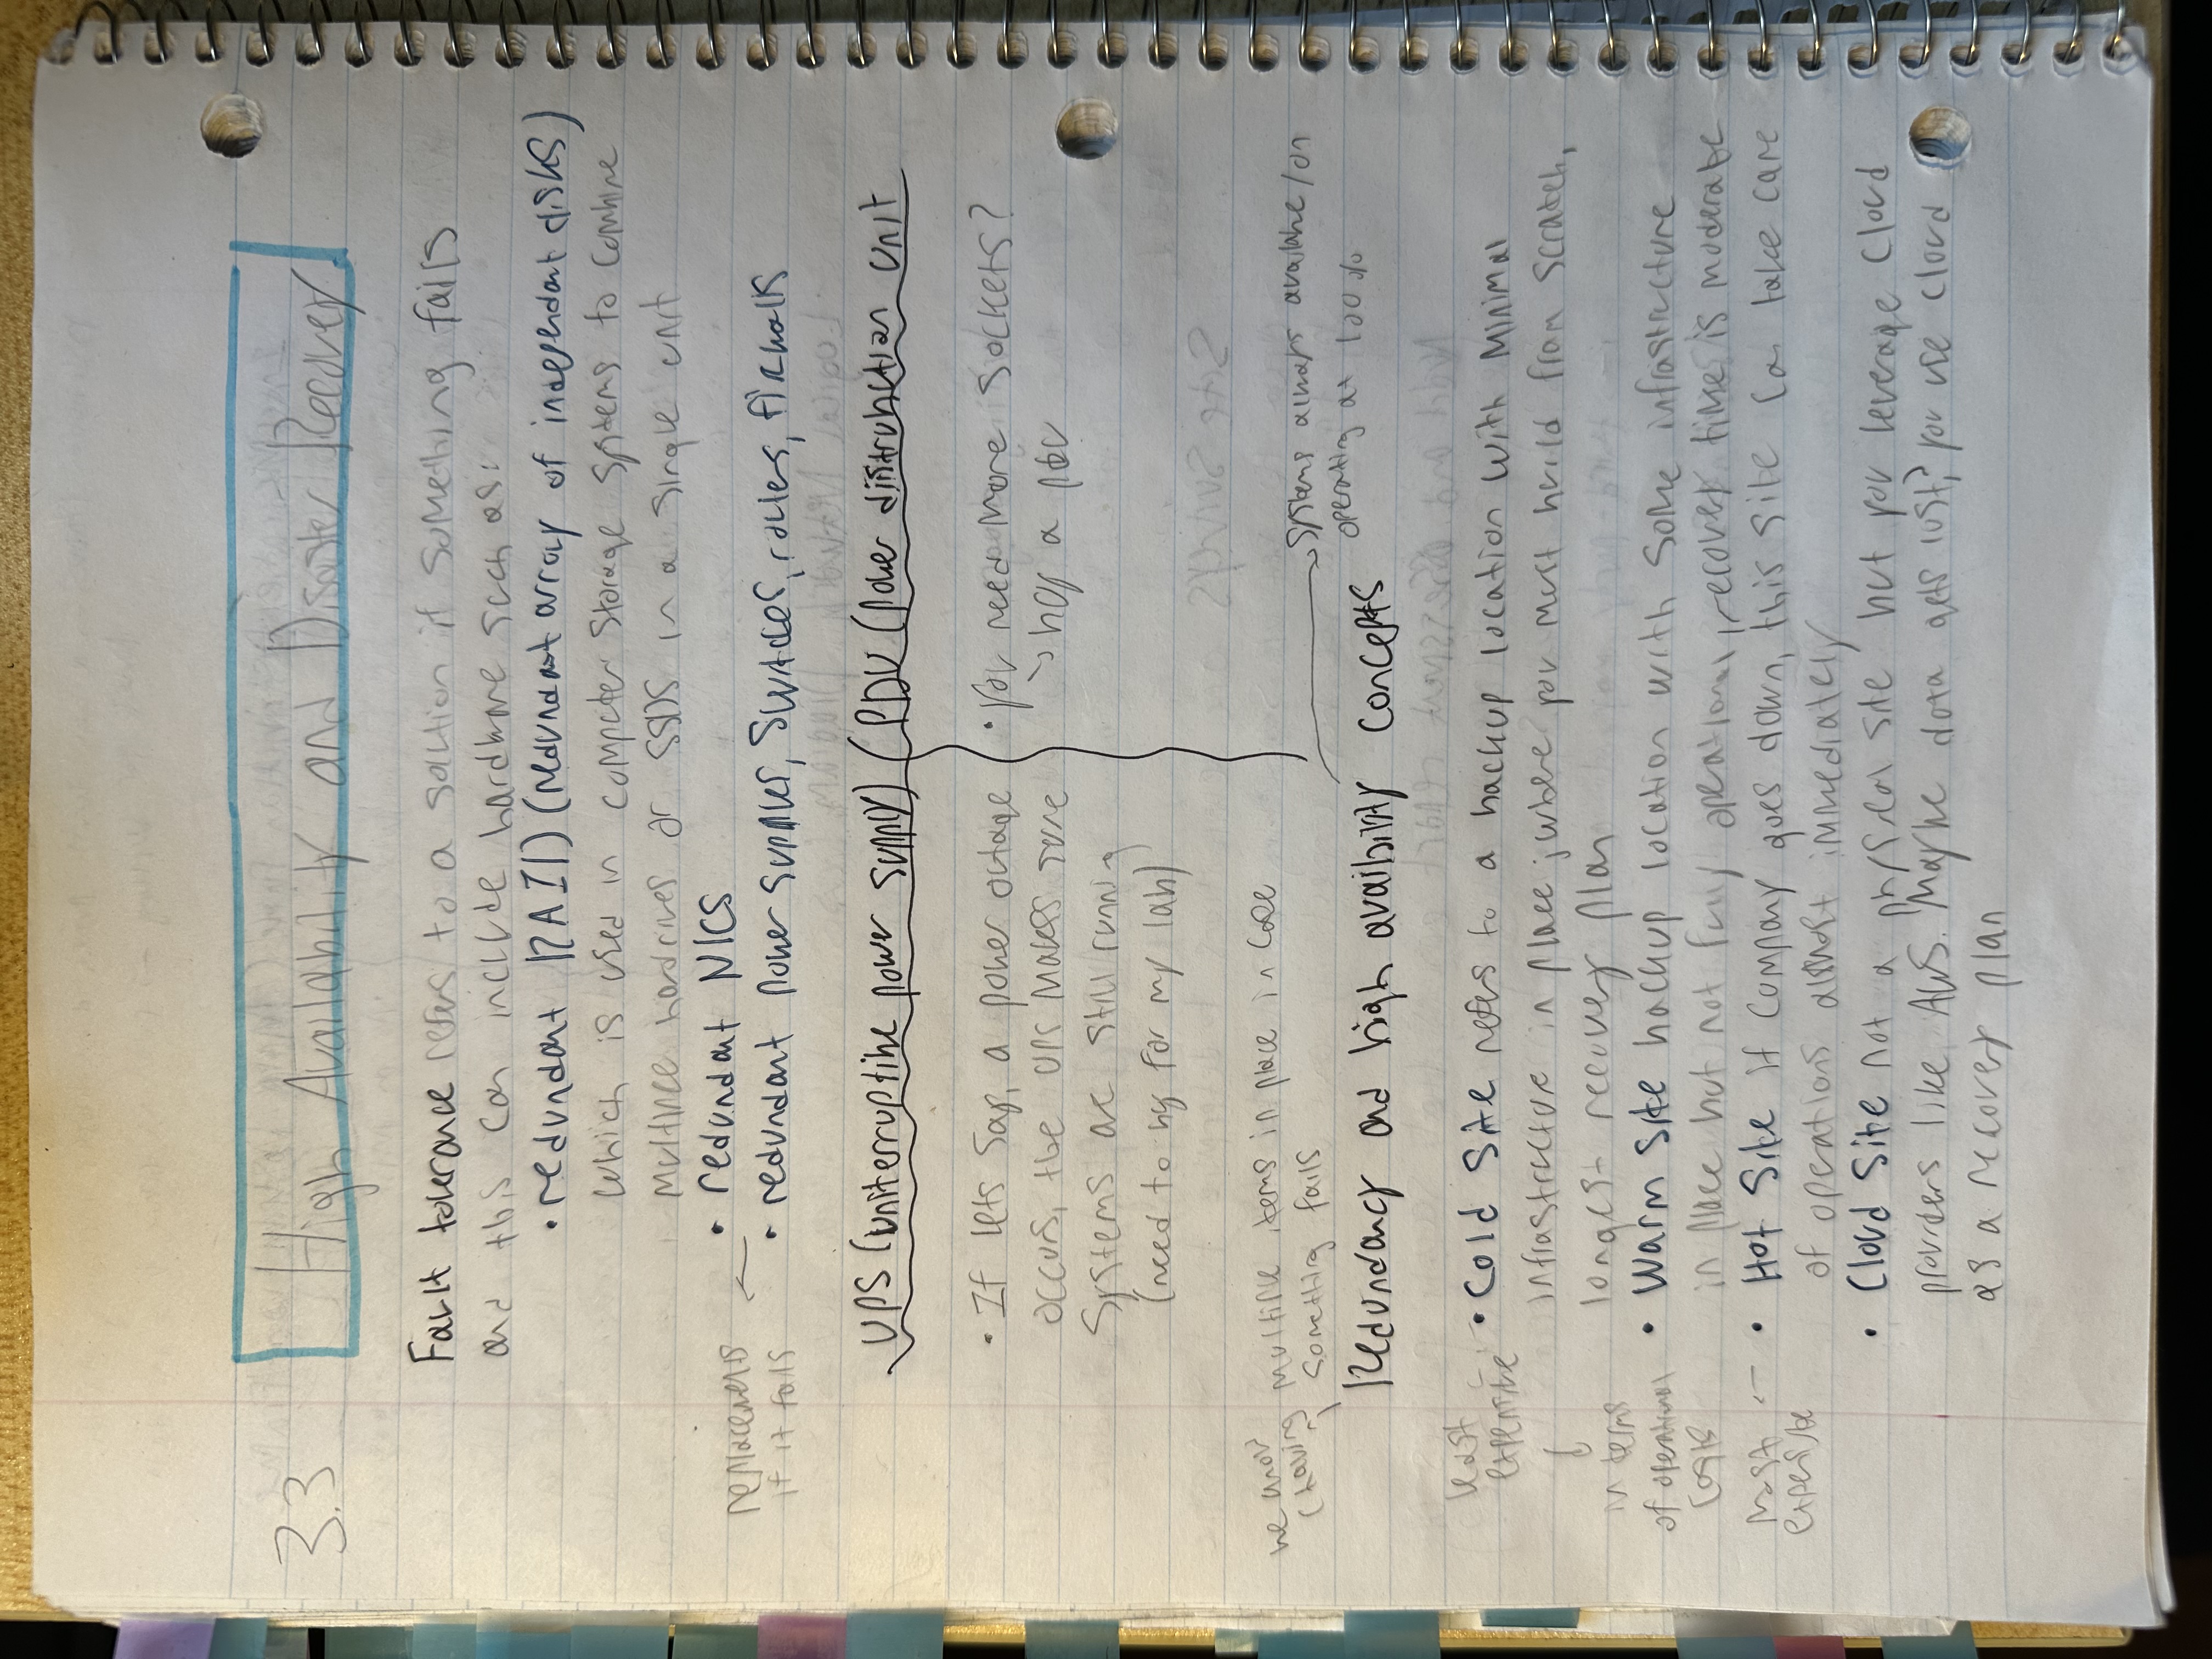 3.3
High Availability and Disaster Recovery
Fault tolerance refers to a solution if something fails
and this can include hardware such as:
• redundant RAID (redundant array of independant disks)
which is used in computer storage systems to combine
multiple hardrives or SSDs in a single unit
• redundant NICS
replacements
if it fails
• redundant power supplies, switches, routers, firewalls
UPS (uniterruptible power supply)
PDU (power distrubution unit
• If lets say, a power outage
occurs, the UPS makes sure
systems are still running
(need to buy for my lab)
• you need more sockets?
→ buy a pdu
(having multiple items in place in case
something fails
systems always available/on
operating at 100%
Redundancy and high availbility concepts
least
expensive
in terms
of operational
costs
• Cold Site refers to a backup location with minimal
infrastructure in place; where you must build from scratch,
longest recovery plan
• Warm Site backup location with some infrastructure
in place but not fully operational, recovery time is moderate
most
expensive
• Hot Site if company goes down, this site can take care
of operations almost immediately
• Cloud Site not a physical site but you leverage cloud
providers like AWS. Maybe data gets lost? you use cloud
as a recovery plan